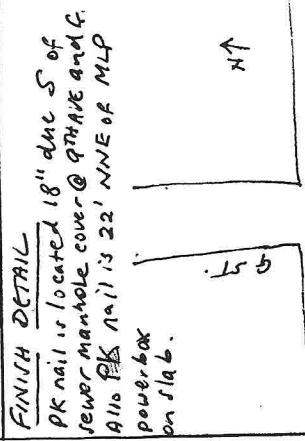 FINISH DETAIL
PK nail is located 18" due S of
sewer manhole cover @ 9TH AVE and G.
Also PK nail is 22' NNE of MLP
power box
on slab.
G ST.
N